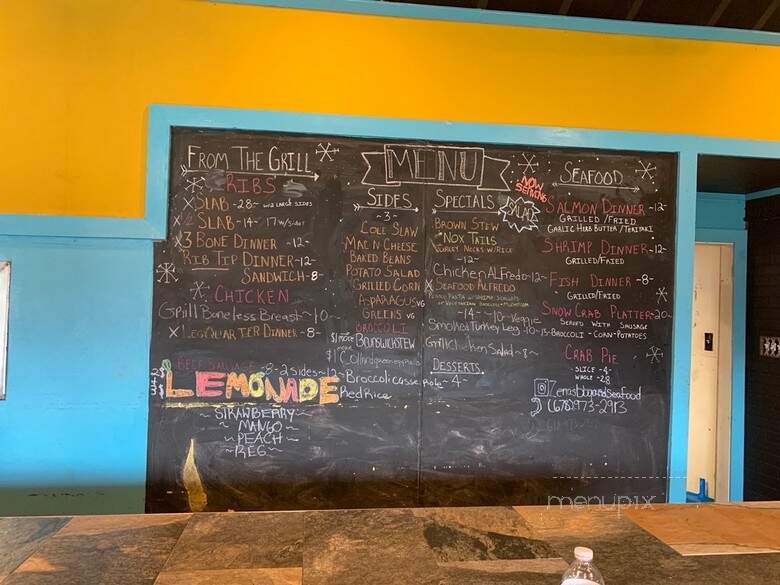 FROM THE GRILL
RIBS
SLAB -28- W/2 LARGE SIDES
1/2 SLAB -14- 17 W/SIDES
3 BONE DINNER -12-
RIB TIP DINNER -12-
SANDWICH -8-
CHICKEN
Grill Boneless Breast -10-
LEG QUARTER DINNER -8-
-8- 2 sides -12-
LEMONADE
STRAWBERRY
MANGO
PEACH
REG
MENU
SIDES
-3-
COLE SLAW
MAC N CHEESE
BAKED BEANS
POTATO SALAD
GRILLED CORN
ASPARAGUS VG
GREENS VG
BROCCOLI
$1 more BRUNSWICK STEW
$1 Collard greens
Broccoli casserole
Red Rice
SPECIALS
BROWN STEW
NOX TAILS
TURKEY NECKS W/RICE
-12-
Chicken ALFredo -12-
SEAFOOD ALFREDO
-14- -10- Veggie
Smoked Turkey Leg -10-
Grill Chicken Salad -8-
DESSERTS
-4-
NOW SERVING
SALAD
SEAFOOD
SALMON DINNER -12-
GRILLED/FRIED
GARLIC HERB BUTTER/TERIYAKI
SHRIMP DINNER -12-
GRILLED/FRIED
FISH DINNER -8-
GRILLED/FRIED
SNOW CRAB PLATTER -20-
SERVED WITH SAUSAGE
BROCCOLI - CORN - POTATOES
CRAB PIE
SLICE -4-
WHOLE -28
(678)973-2913
menupix